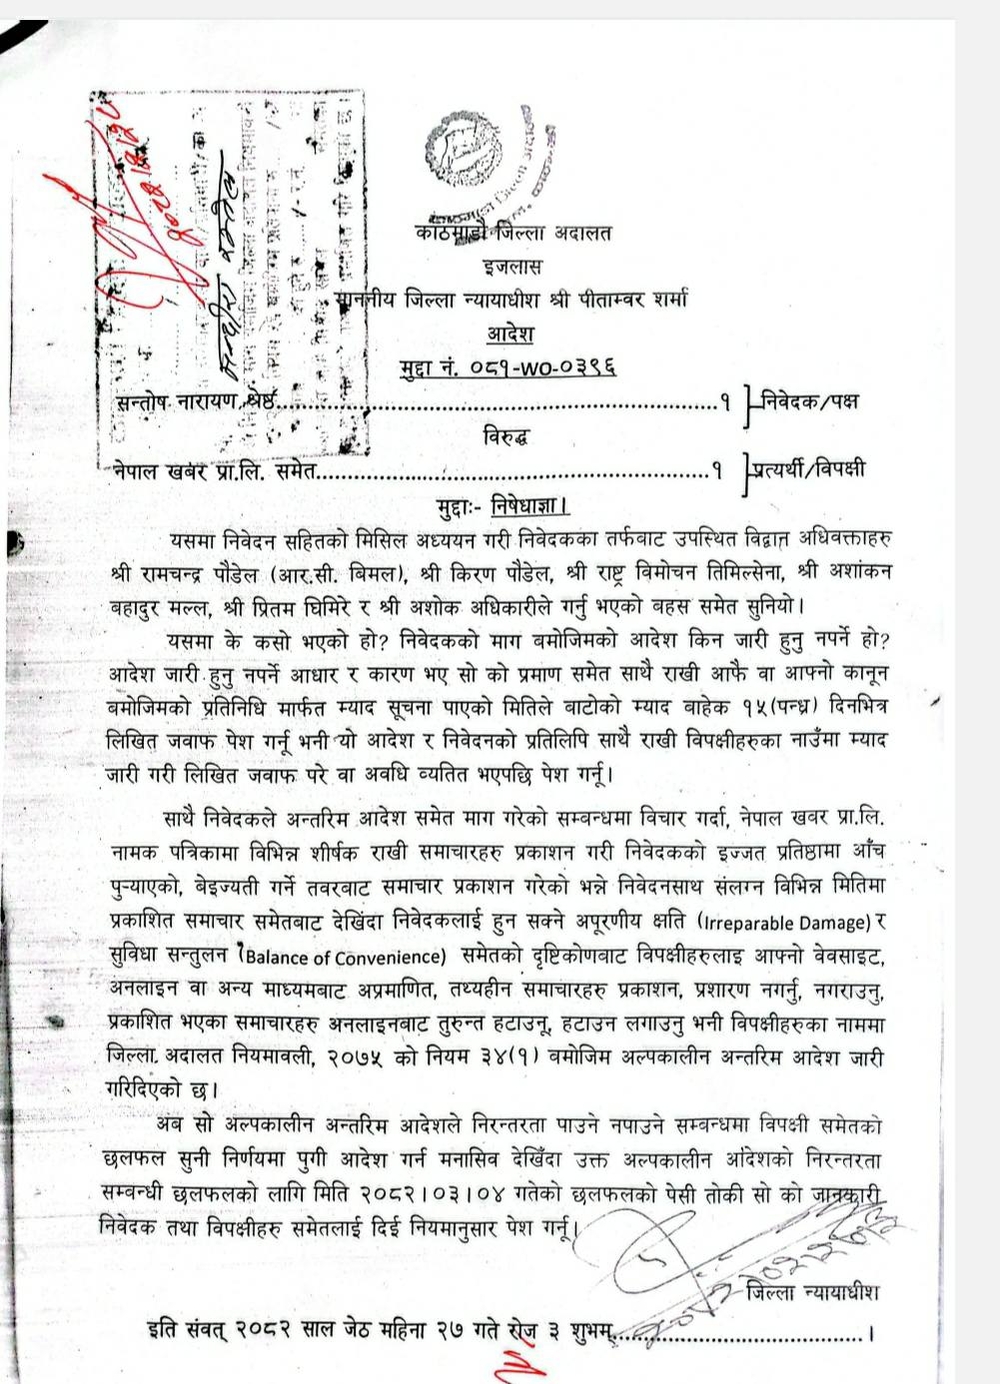 काठमाडौं जिल्ला अदालत
इजलास
माननीय जिल्ला न्यायाधीश श्री पीताम्वर शर्मा
आदेश
मुद्दा नं. ०८१-WO-०३९६
सन्तोष नारायण श्रेष्ठ..................................................१ ]–निवेदक/पक्ष
विरुद्ध
नेपाल खबर प्रा.लि. समेत..................................................१ ]प्रत्यर्थी/विपक्षी
मुद्दाः- निषेधाज्ञा।
यसमा निवेदन सहितको मिसिल अध्ययन गरी निवेदकका तर्फबाट उपस्थित विद्वान अधिवक्ताहरु
श्री रामचन्द्र पौडेल (आर.सी. बिमल), श्री किरण पौडेल, श्री राष्ट्र विमोचन तिमिल्सेना, श्री अशांकन
बहादुर मल्ल, श्री प्रितम घिमिरे र श्री अशोक अधिकारीले गर्नु भएको बहस समेत सुनियो।
यसमा के कसो भएको हो? निवेदकको माग बमोजिमको आदेश किन जारी हुनु नपर्ने हो?
आदेश जारी हुनु नपर्ने आधार र कारण भए सो को प्रमाण समेत साथै राखी आफै वा आफ्नो कानून
बमोजिमको प्रतिनिधि मार्फत म्याद सूचना पाएको मितिले बाटोको म्याद बाहेक १५(पन्ध्र) दिनभित्र
लिखित जवाफ पेश गर्नू भनी यो आदेश र निवेदनको प्रतिलिपि साथै राखी विपक्षीहरुका नाउँमा म्याद
जारी गरी लिखित जवाफ परे वा अवधि व्यतित भएपछि पेश गर्नू।
साथै निवेदकले अन्तरिम आदेश समेत माग गरेको सम्बन्धमा विचार गर्दा, नेपाल खबर प्रा.लि.
नामक पत्रिकामा विभिन्न शीर्षक राखी समाचारहरु प्रकाशन गरी निवेदकको इज्जत प्रतिष्ठामा आँच
पुऱ्याएको, बेइज्यती गर्ने तवरबाट समाचार प्रकाशन गरेको भन्ने निवेदनसाथ संलग्न विभिन्न मितिमा
प्रकाशित समाचार समेतबाट देखिंदा निवेदकलाई हुन सक्ने अपूरणीय क्षति (Irreparable Damage) र
सुविधा सन्तुलन (Balance of Convenience) समेतको दृष्टिकोणबाट विपक्षीहरुलाइ आफ्नो वेवसाइट,
अनलाइन वा अन्य माध्यमबाट अप्रमाणित, तथ्यहीन समाचारहरु प्रकाशन, प्रशारण नगर्नु, नगराउनु,
प्रकाशित भएका समाचारहरु अनलाइनबाट तुरुन्त हटाउनू, हटाउन लगाउनु भनी विपक्षीहरुका नाममा
जिल्ला अदालत नियमावली, २०७५ को नियम ३४(१) वमोजिम अल्पकालीन अन्तरिम आदेश जारी
गरिदिएको छ।
अब सो अल्पकालीन अन्तरिम आदेशले निरन्तरता पाउने नपाउने सम्बन्धमा विपक्षी समेतको
छलफल सुनी निर्णयमा पुगी आदेश गर्न मनासिव देखिँदा उक्त अल्पकालीन आदेशको निरन्तरता
सम्बन्धी छलफलको लागि मिति २०८२।०३।०४ गतेको छलफलको पेसी तोकी सो को जानकारी
निवेदक तथा विपक्षीहरु समेतलाई दिई नियमानुसार पेश गर्नू।
जिल्ला न्यायाधीश
इति संवत् २०८२ साल जेठ महिना २७ गते रोज ३ शुभम्..............................।